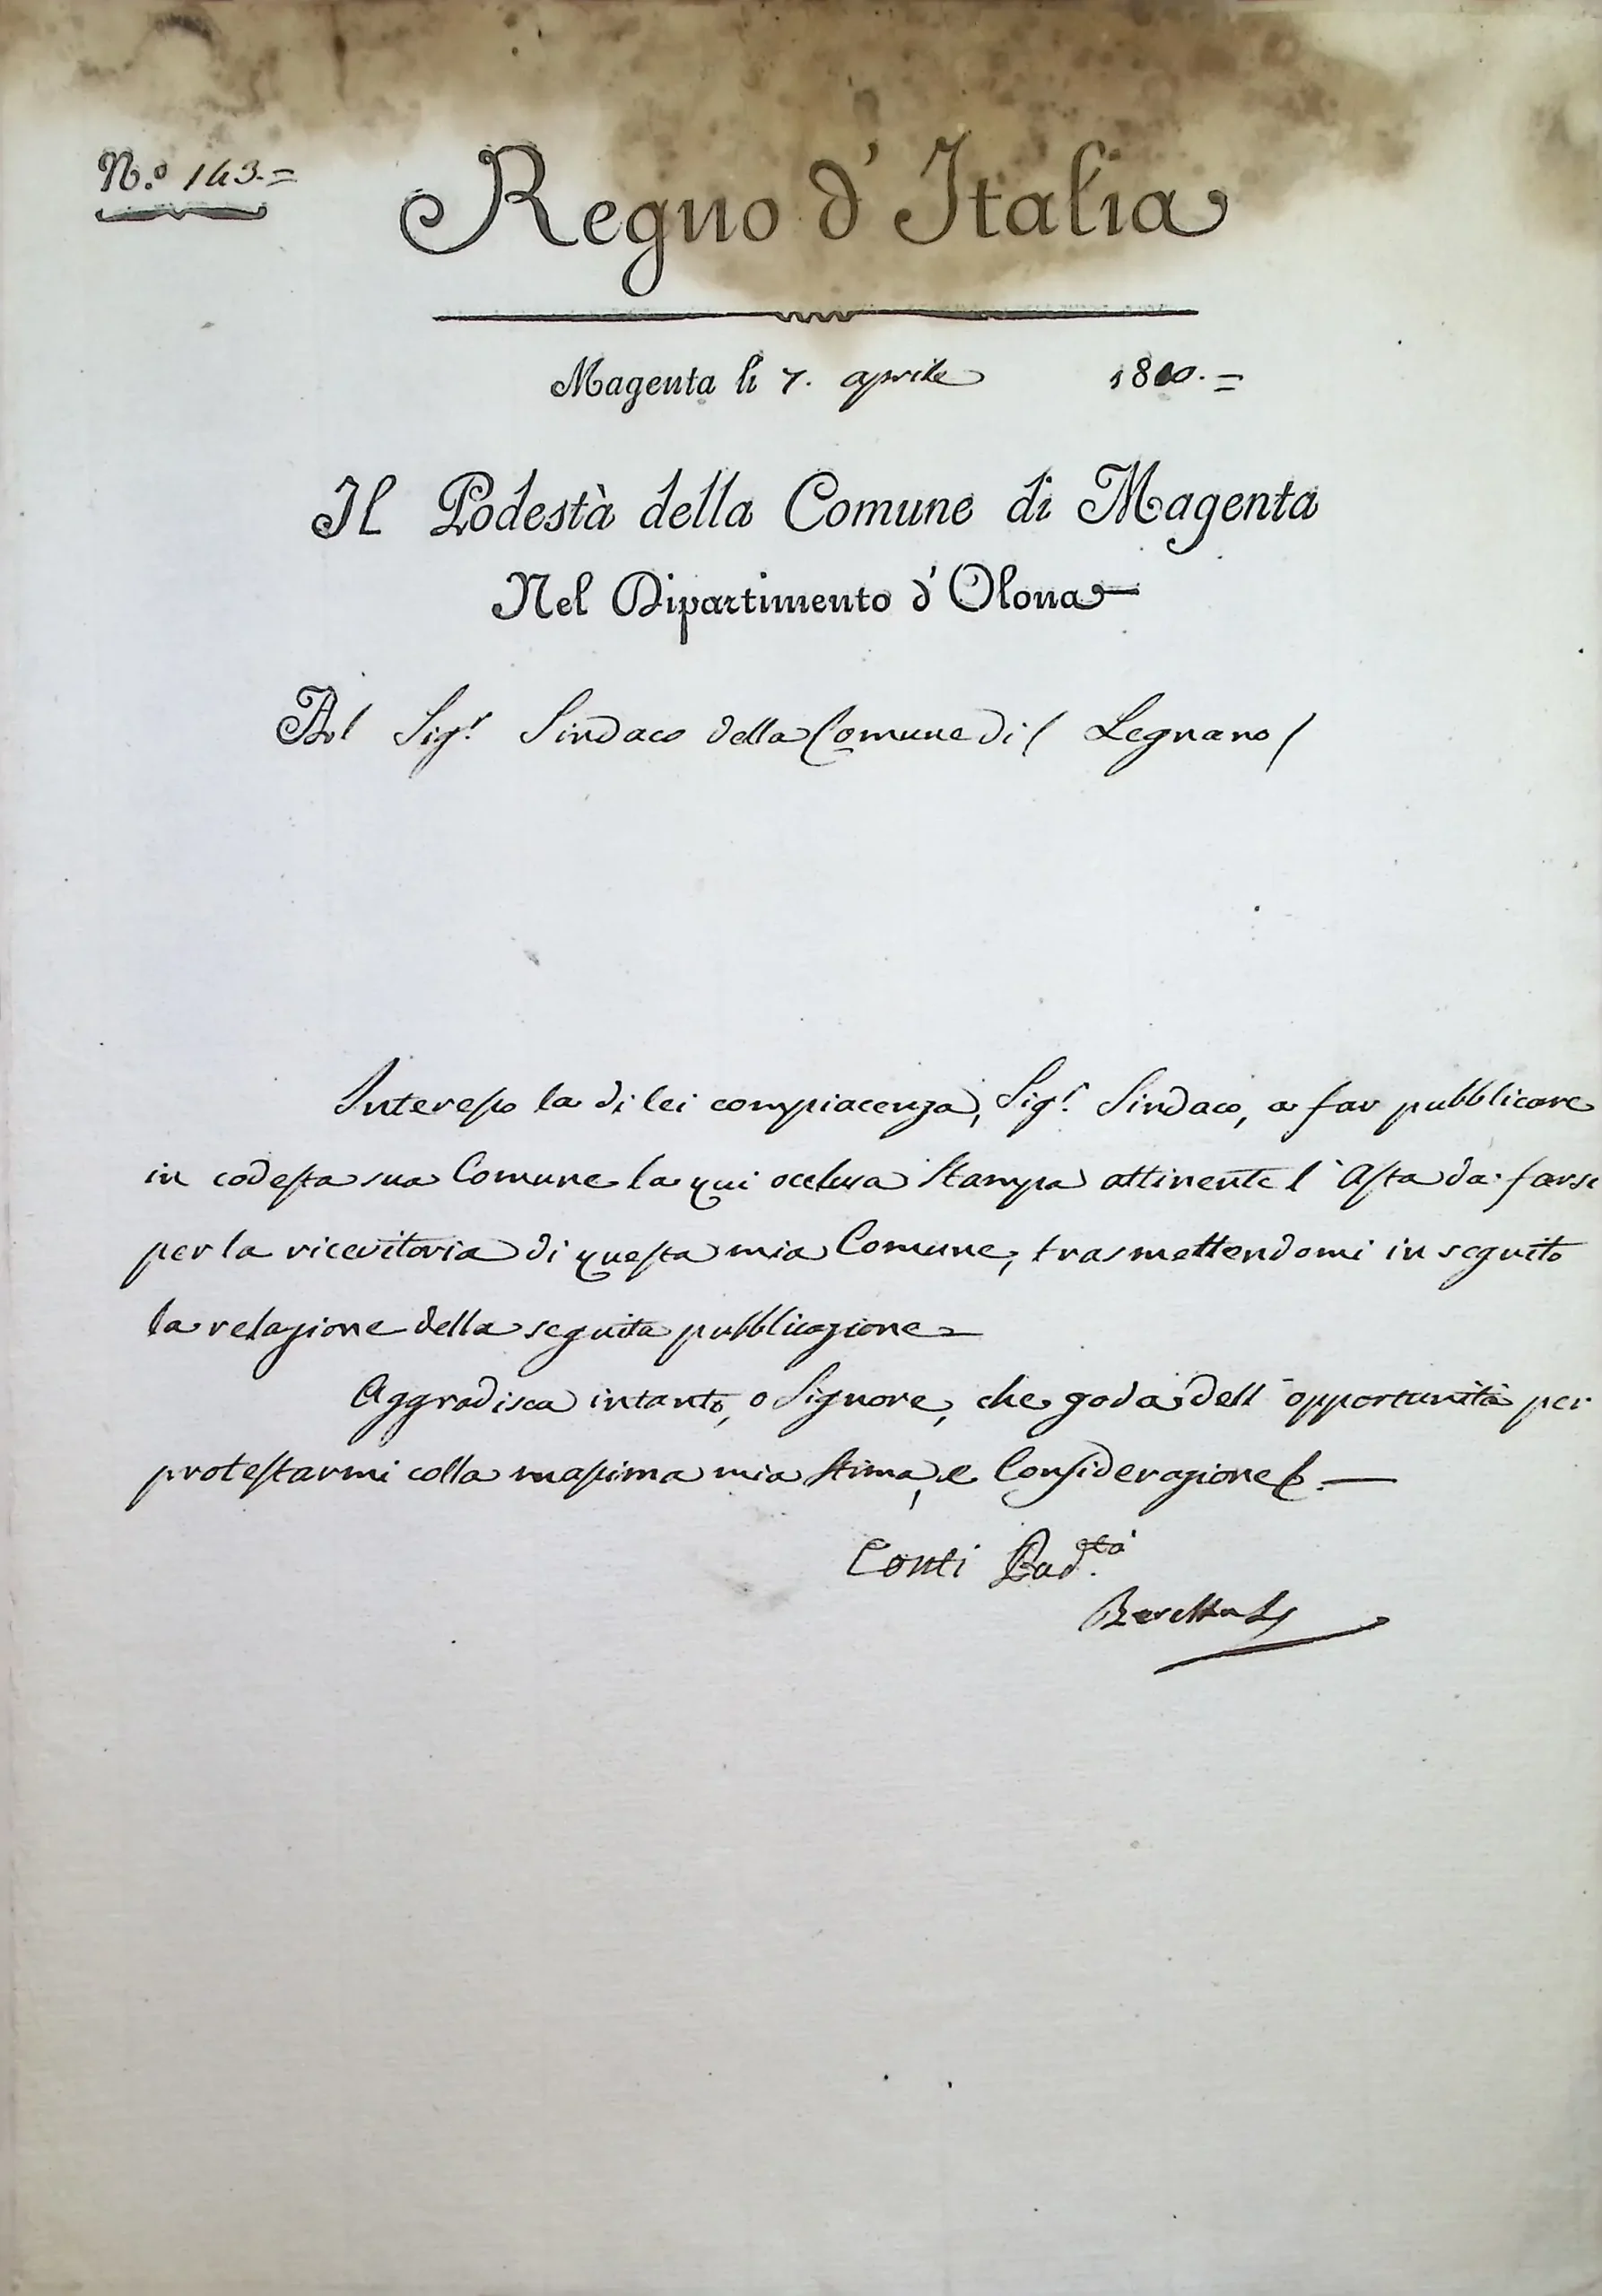 N.º 143.=
Regno d'Italia
Magenta li 7. aprile 1810.=
Il Podestà della Comune di Magenta
Nel Dipartimento d'Olona
Al Sig.r Sindaco della Comune di Legnano
Interesso la di lei compiacenza, Sig.r Sindaco, a far pubblicare
in codesta sua Comune la qui occlusa Stampa attinente l'Asta da farsi
per la ricevitoria di questa mia Comune, trasmettendomi in seguito
la relazione della seguita pubblicazione
Aggradisca intanto, o Signore, che goda dell'opportunità per
protestarmi colla massima mia stima, e Considerazione
Conti Pod.stà
Beretta